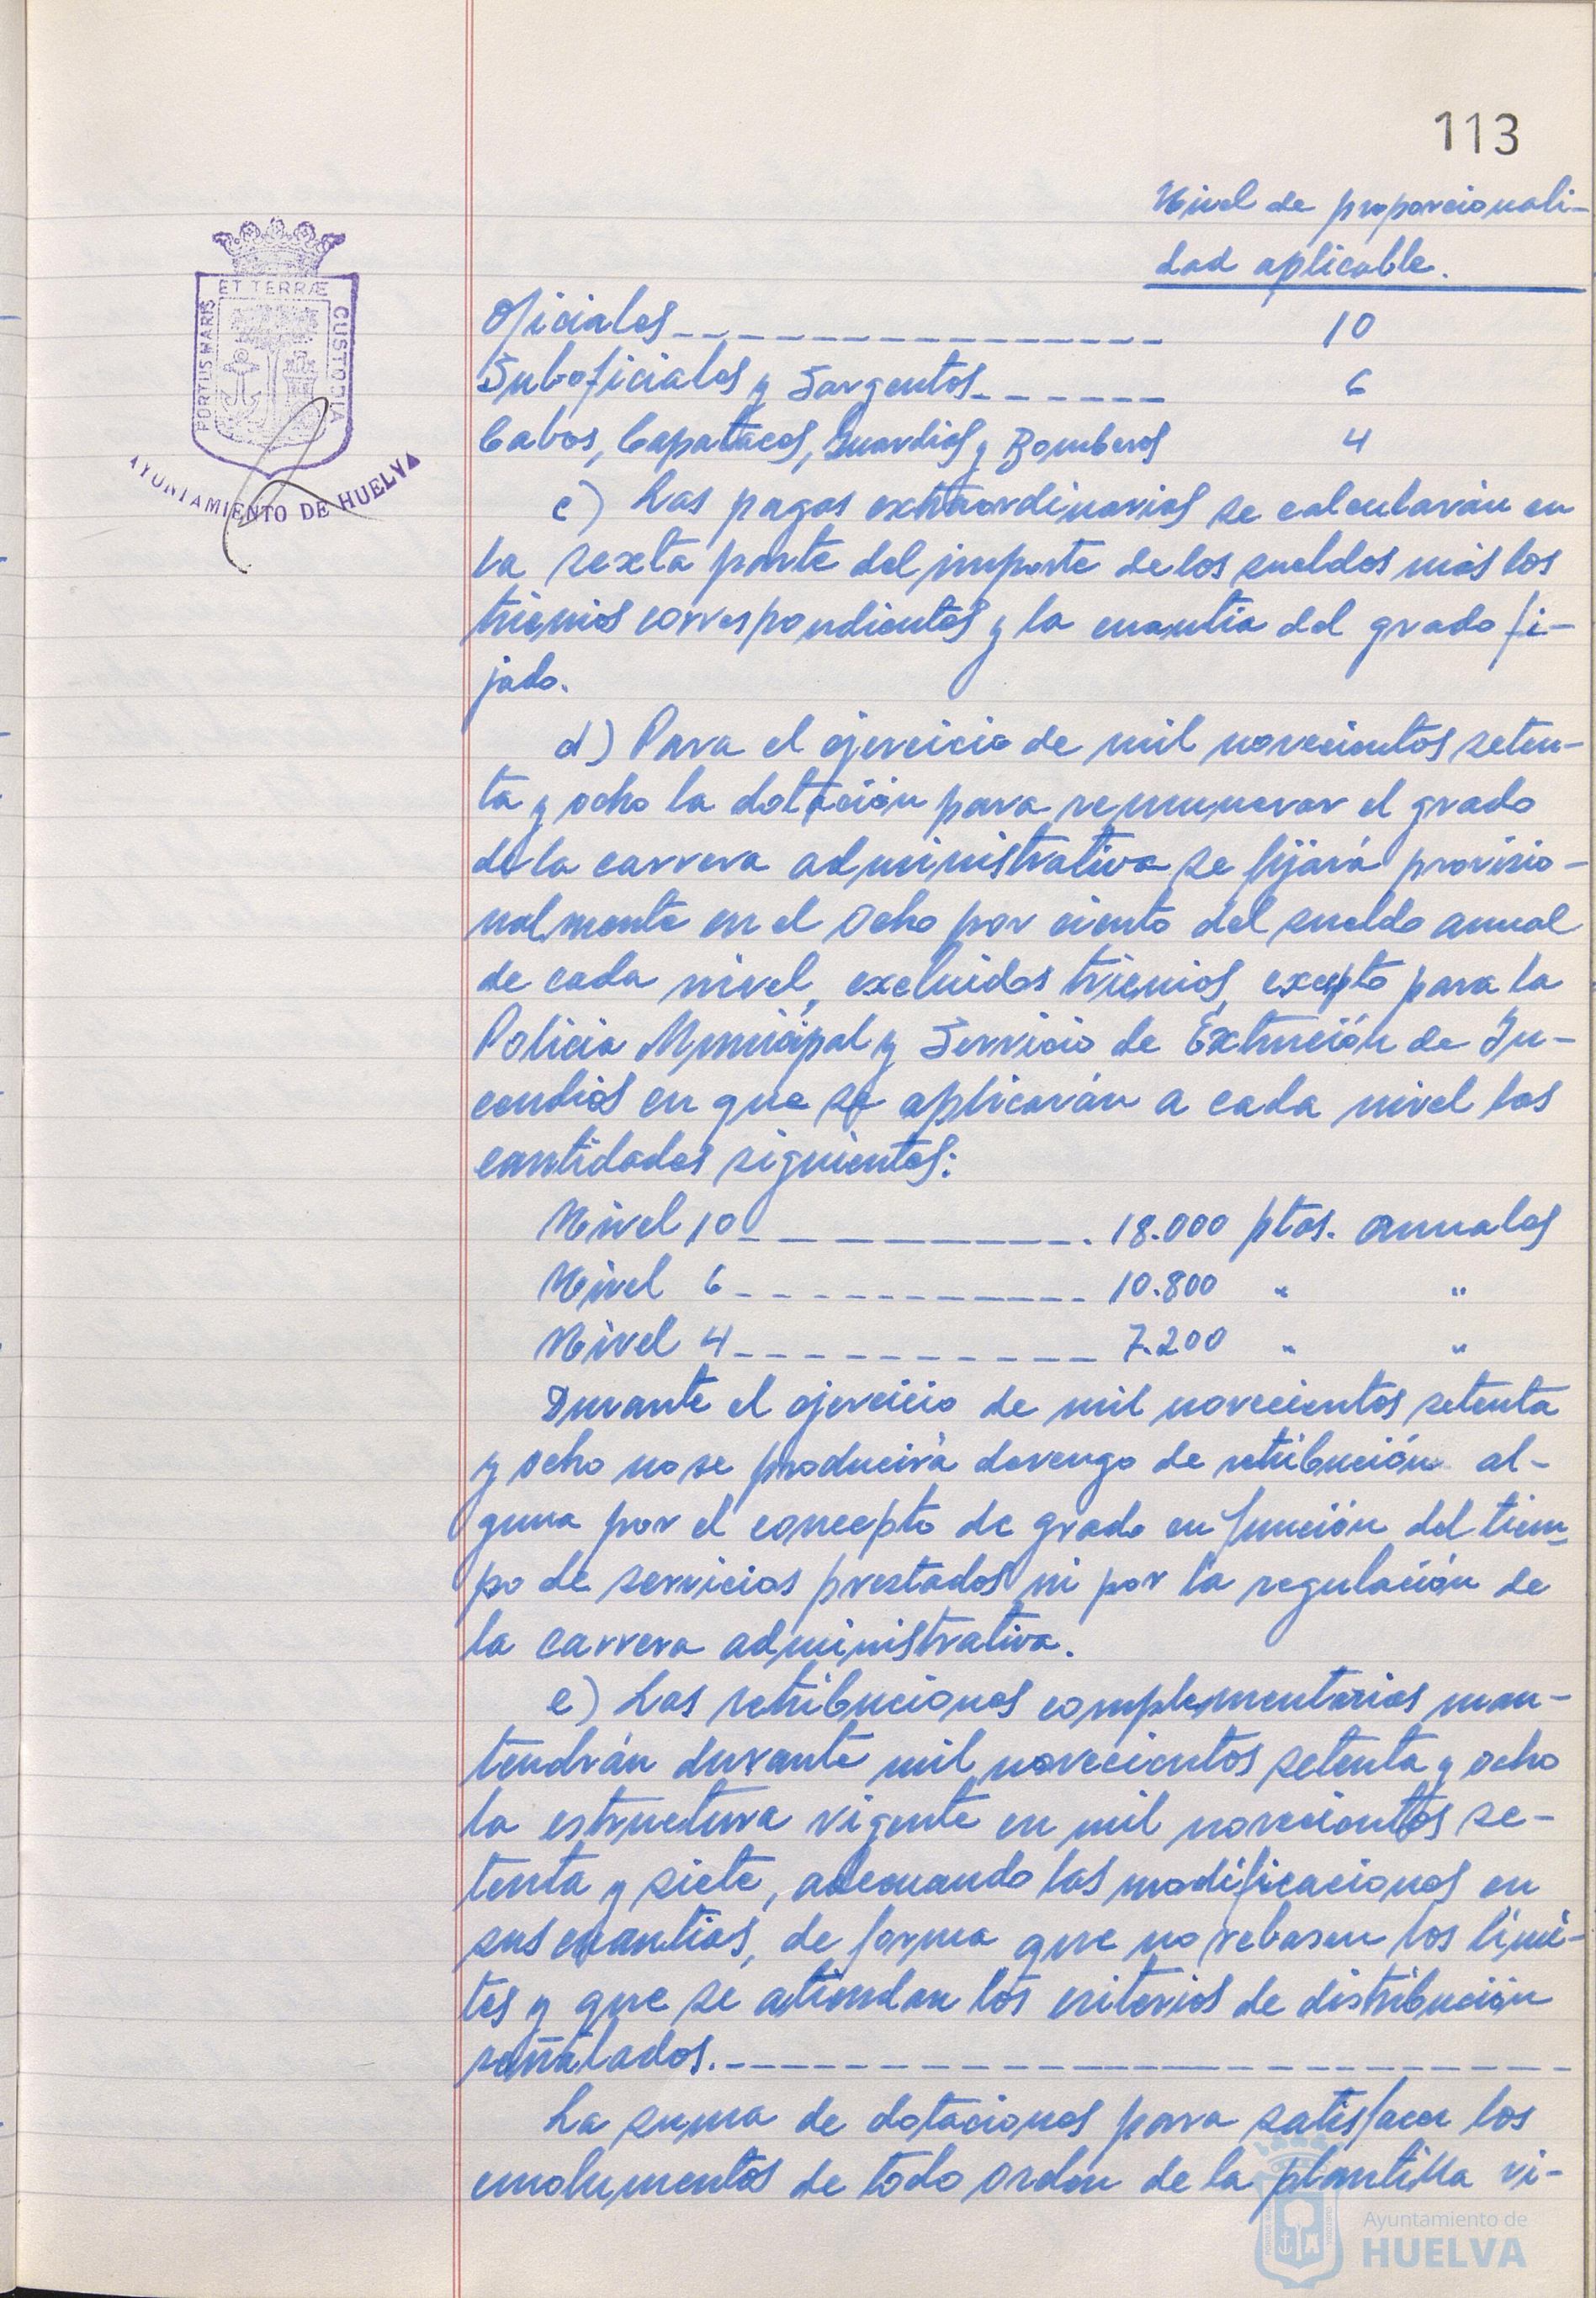 113
Nivel de proporcionali-
dad aplicable.
ET TERRÆ
PORTUS MARIS
CUSTODIA
AYUNTAMIENTO DE HUELVA
Oficiales 10
Suboficiales y Sargentos 6
Cabos, Capataces, Guardias y Bomberos 4
c) Las pagas extraordinarias se calcularán en
la sexta parte del importe de los sueldos más los
trienios correspondientes y la cuantia del grado fi-
jado.
d) Para el ejercicio de mil novecientos seten-
ta y ocho la dotación para remunerar el grado
de la carrera administrativa se fijará provisio-
nalmente en el ocho por ciento del sueldo anual
de cada nivel, excluidos trienios, excepto para la
Policia Municipal y Servicio de Extinción de In-
cendios en que se aplicarán a cada nivel las
cantidades siguientes:
Nivel 10 18.000 ptas. anuales
Nivel 6 10.800 " "
Nivel 4 7.200 " "
Durante el ejercicio de mil novecientos setenta
y ocho no se producirá devengo de retribución al-
guna por el concepto de grado en función del tiem-
po de servicios prestados ni por la regulación de
la carrera administrativa.
e) Las retribuciones complementarias man-
tendrán durante mil novecientos setenta y ocho
la estructura vigente en mil novecientos se-
tenta y siete, adecuando las modificaciones en
sus cuantias, de forma que no rebasen los lími-
tes y que se atiendan los criterios de distribución
señalados.
La suma de dotaciones para satisfacer los
emolumentos de todo orden de la plantilla vi-
Ayuntamiento de
HUELVA